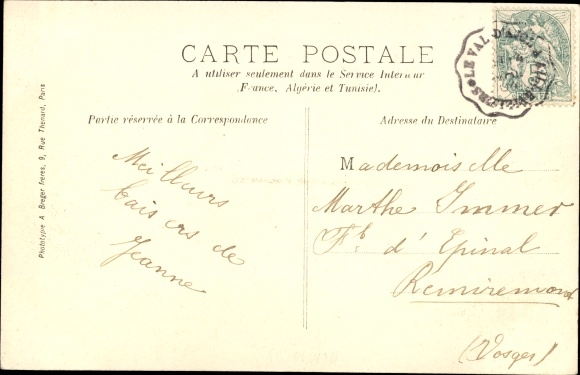 CARTE POSTALE
A utiliser seulement dans le Service Intérieur
(France, Algérie et Tunisie).
Partie réservée à la Correspondance
Adresse du Destinataire
Meilleurs
baisers de
Jeanne
Mademoiselle
Marthe Immer
Fb d'Epinal
Remiremont
(Vosges)
LE VAL-D'AJOL
Phototypie A. Breger frères, 9, Rue Thénard, Paris